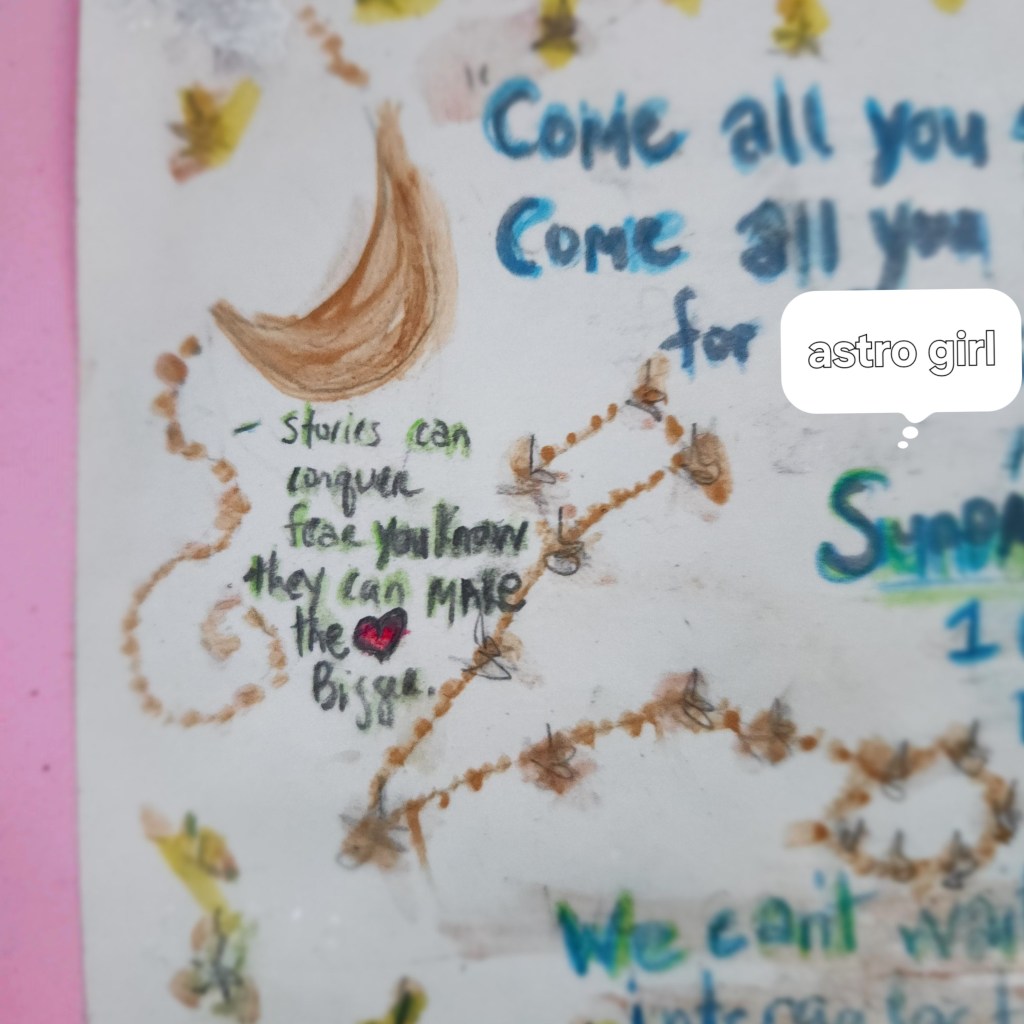 "Come all you
Come all you
for
astro girl
- Stories can
conquer
fear you know
they can make
the
Bigger.
1
We can't wait